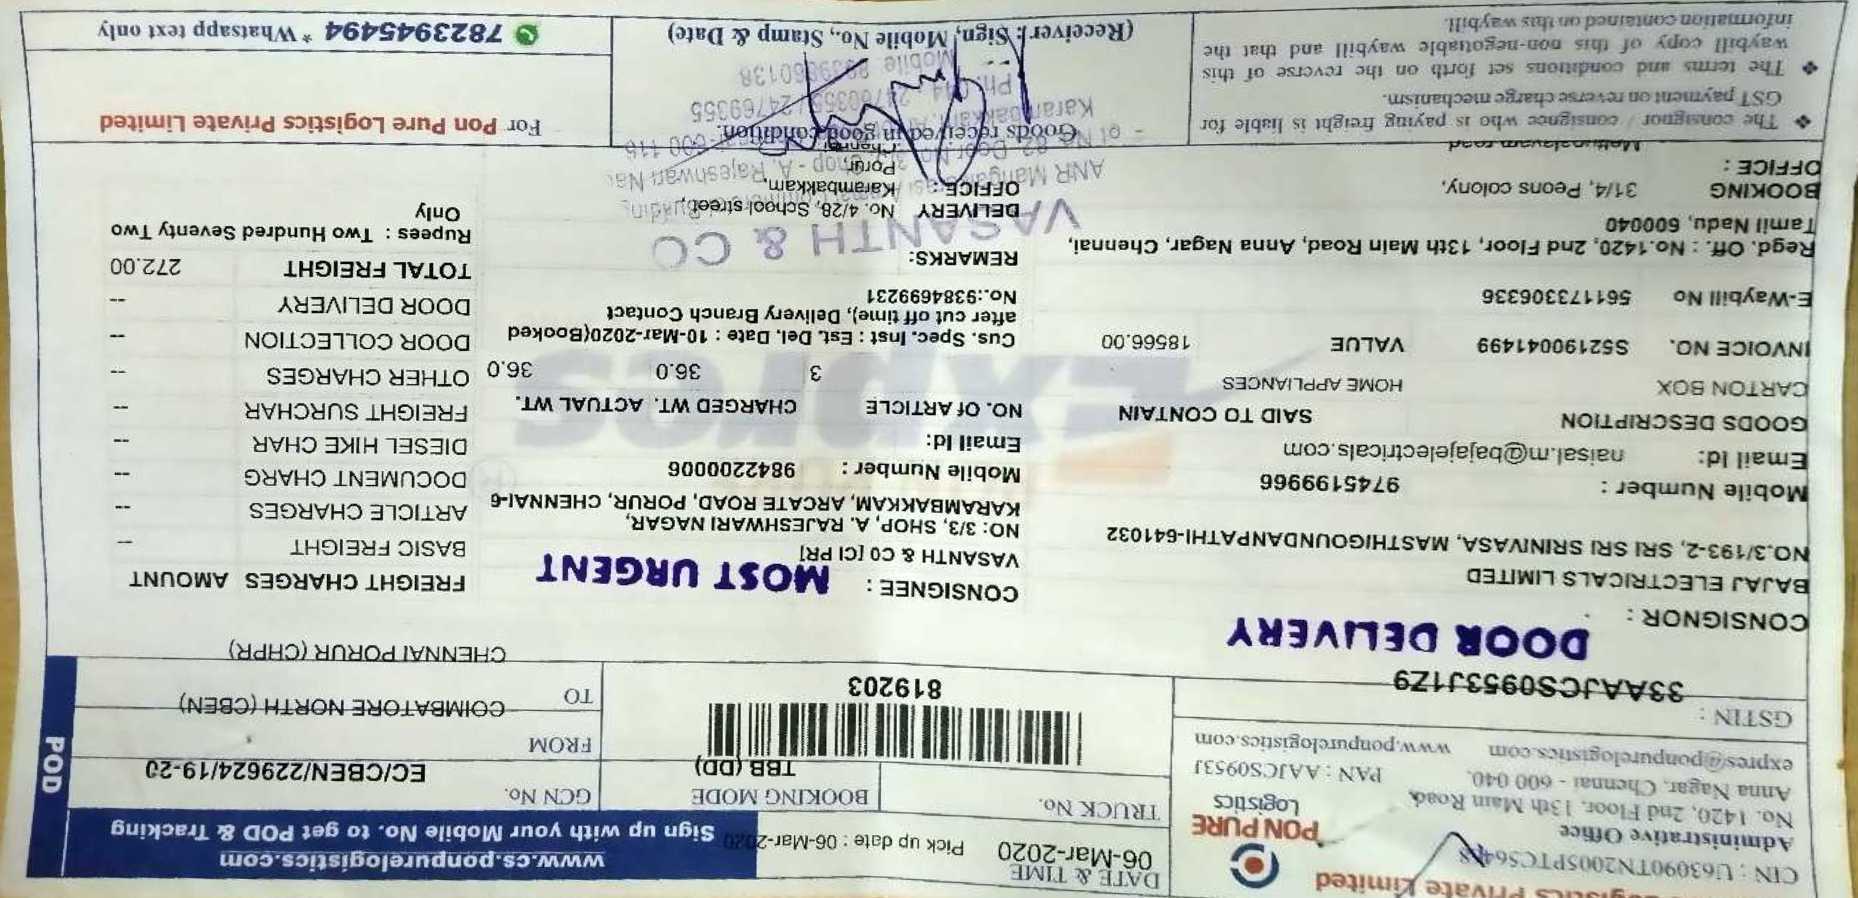 Logistics Private Limited
CIN : U63090TN2005PTC56448
Administrative Office
No. 1420, 2nd Floor, 13th Main Road,
Anna Nagar, Chennai - 600 040. PAN : AAJCS0953J
expres@ponpurelogistics.com www.ponpurelogistics.com
PON PURE
Logistics
GSTIN :
33AAJCS0953J1Z9
DATE & TIME
06-Mar-2020 Pick up date : 06-Mar-2020
TRUCK No.
BOOKING MODE
TBB (DD)
819203
www.cs.ponpurelogistics.com
Sign up with your Mobile No. to get POD & Tracking
GCN No.
EC/CBEN/229624/19-20
FROM
COIMBATORE NORTH (CBEN)
TO
CHENNAI PORUR (CHPR)
POD
DOOR DELIVERY
CONSIGNOR :
BAJAJ ELECTRICALS LIMITED
NO.3/193-2, SRI SRI SRINIVASA, MASTHIGOUNDANPATHI-641032
Mobile Number : 9745199966
Email Id: naisal.m@bajajelectricals.com
GOODS DESCRIPTION SAID TO CONTAIN
CARTON BOX HOME APPLIANCES
INVOICE NO. S5219004149​9 VALUE 18566.00
E-Waybill No 561173306336
Regd. Off. : No.1420, 2nd Floor, 13th Main Road, Anna Nagar, Chennai,
Tamil Nadu, 600040
BOOKING OFFICE : 31/4, Peons colony,
Mettupalayam road
CONSIGNEE : MOST URGENT
VASANTH & CO [CI PR]
NO: 3/3, SHOP, A. RAJESHWARI NAGAR,
KARAMBAKKAM, ARCATE ROAD, PORUR, CHENNAI-6
Mobile Number : 9842200006
Email Id:
NO. Of ARTICLE CHARGED WT. ACTUAL WT.
3 36.0 36.0
Cus. Spec. Inst : Est. Del. Date : 10-Mar-2020(Booked
after cut off time), Delivery Branch Contact
No.:9384699231
REMARKS:
VASANTH & CO
DELIVERY OFFICE : No. 4/28, School street,
Karambakkam,
Porur
Chennai
Goods received in good condition.
(Receiver : Sign, Mobile No., Stamp & Date)
FREIGHT CHARGES AMOUNT
BASIC FREIGHT --
ARTICLE CHARGES --
DOCUMENT CHARG --
DIESEL HIKE CHAR --
FREIGHT SURCHAR --
OTHER CHARGES --
DOOR COLLECTION --
DOOR DELIVERY --
TOTAL FREIGHT 272.00
Rupees : Two Hundred Seventy Two
Only
For Pon Pure Logistics Private Limited
7823945494 * Whatsapp text only
❖ The consignor / consignee who is paying freight is liable for
GST payment on reverse charge mechanism.
❖ The terms and conditions set forth on the reverse of this
waybill copy of this non-negotiable waybill and that the
information contained on this waybill.